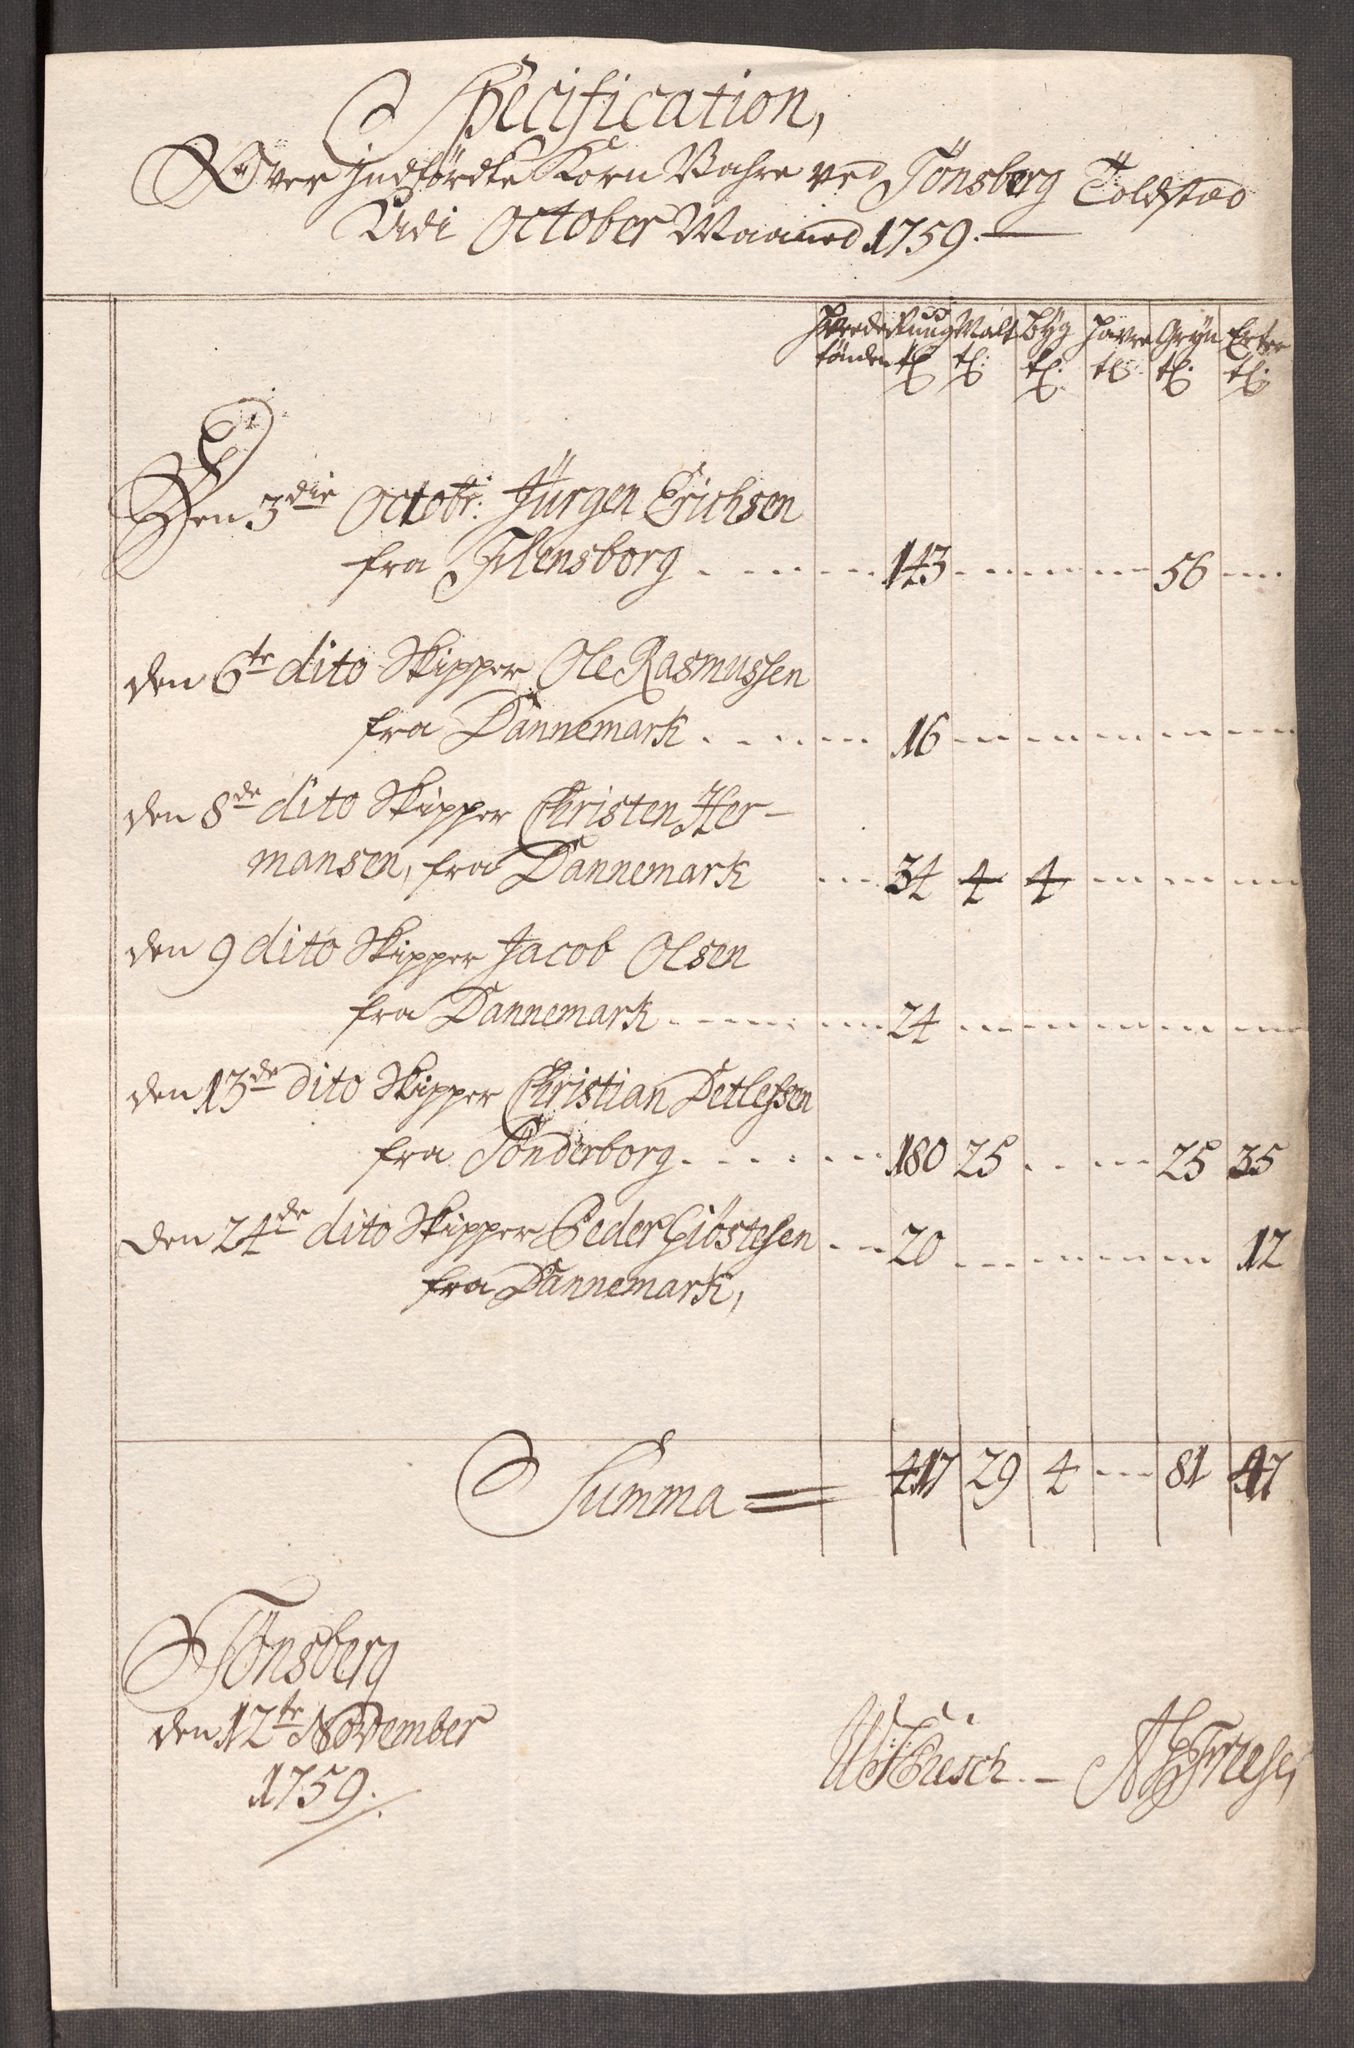 Specification,
Over Indførdte Korn Vahre ved Tönsberg Toldstæd
Udi October Maaned 1759.
Hvede Rug Malt Byg Havre Gryn Erter
tönder tl: tl: tl: tl: tl: tl:
Den 3die Octobr: Jürgen Erichsen
fra Flensborg 143 56
den 6te dito Skipper Ole Rasmussen
fra Dannemark 16
den 8de dito Skipper Christen Her-
mansen, fra Dannemark 34 4 4
den 9 dito Skipper Jacob Olsen
fra Dannemark 24
den 13de dito Skipper Christian Detlefsen
fra Sönderborg 180 25 25 35
den 24de dito Skipper Peder Giöstesen 20 12
fra Dannemark,
Summa 417 29 4 81 47
Tönsberg
den 12te November
1759.